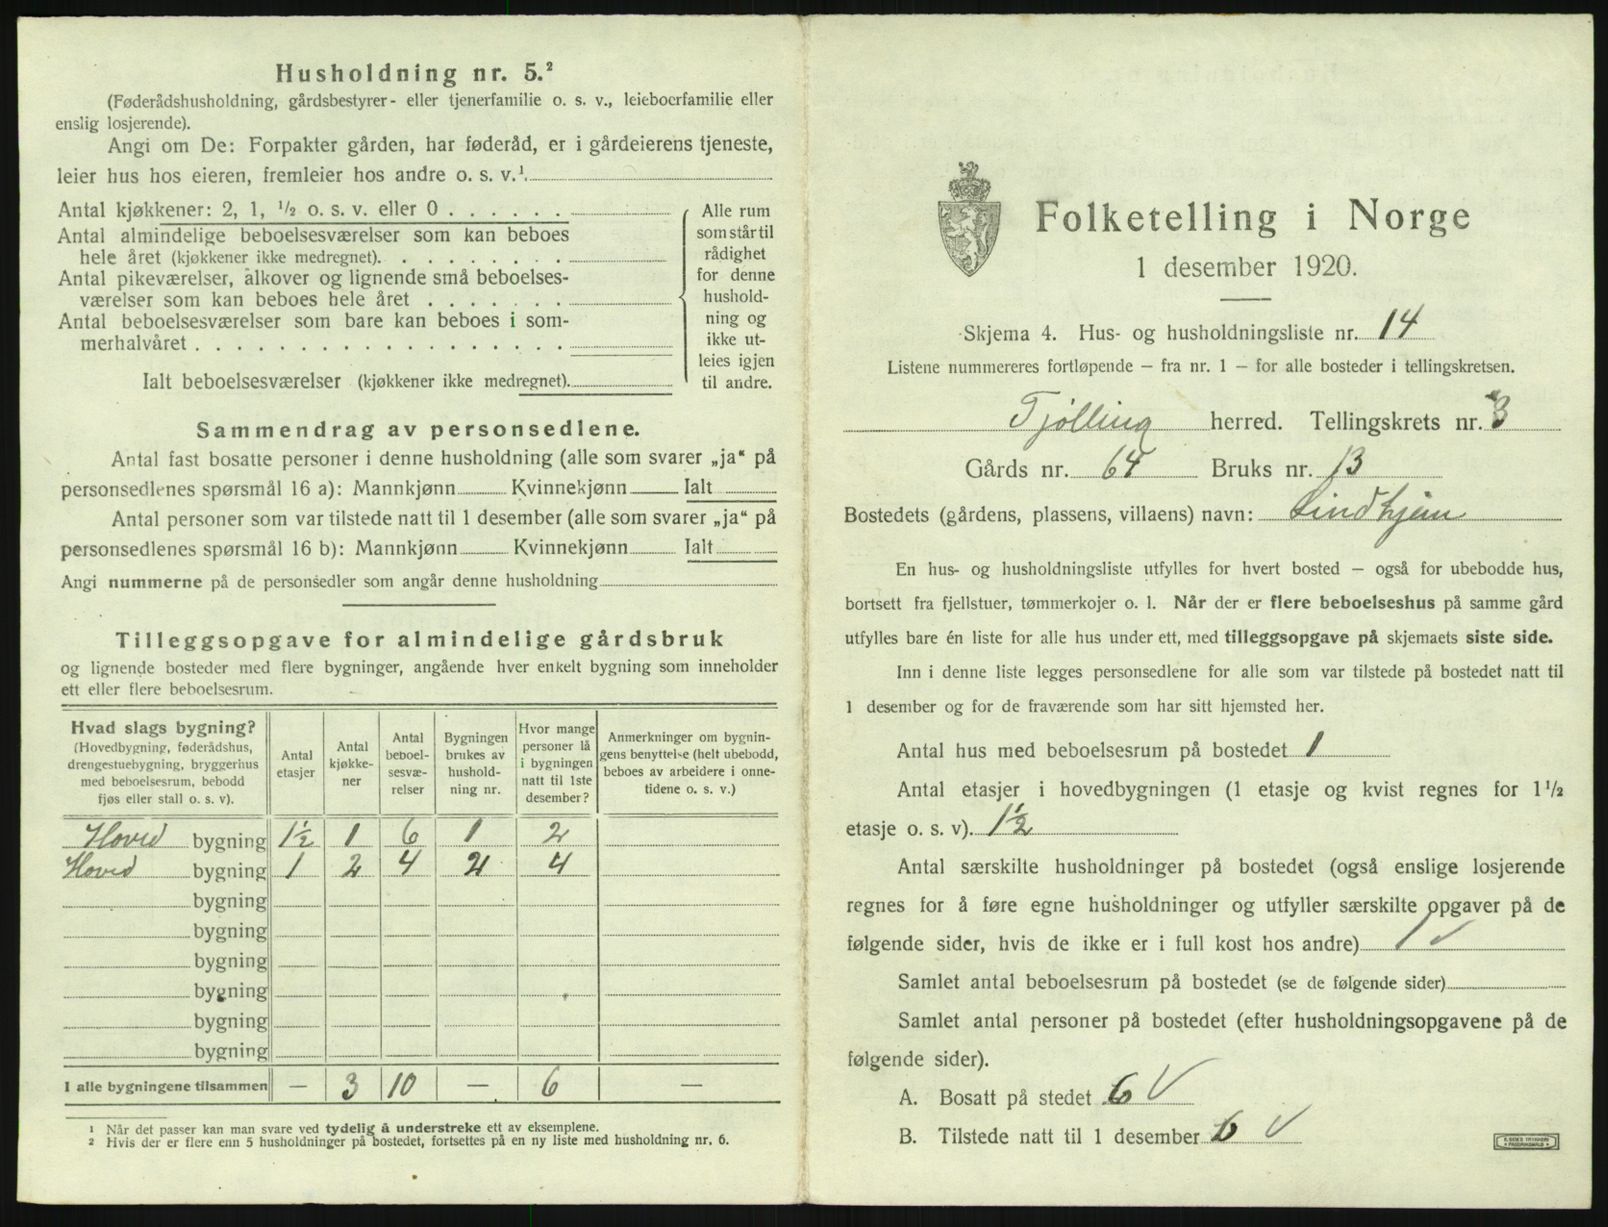 Husholdning nr. 5.²
(Føderådshusholdning, gårdsbestyrer- eller tjenerfamilie o. s. v., leieboerfamilie eller
enslig losjerende).
Angi om De: Forpakter gården, har føderåd, er i gårdeierens tjeneste,
leier hus hos eieren, fremleier hos andre o. s. v.¹
Antal kjøkkener: 2, 1, ½ o. s. v. eller 0 . . . . . .
Antal almindelige beboelsesværelser som kan beboes
hele året (kjøkkener ikke medregnet). . . . . . . . .
Antal pikeværelser, alkover og lignende små beboelses-
værelser som kan beboes hele året . . . . . . .
Antal beboelsesværelser som bare kan beboes i som-
merhalvåret . . . . . . . . . . . . . . . . . .
Ialt beboelsesværelser (kjøkkener ikke medregnet).
Alle rum
som står til
rådighet
for denne
hushold-
ning og
ikke ut-
leies igjen
til andre.
Sammendrag av personsedlene.
Antal fast bosatte personer i denne husholdning (alle som svarer „ja“ på
personsedlenes spørsmål 16 a): Mannkjønn Kvinnekjønn Ialt
Antal personer som var tilstede natt til 1 desember (alle som svarer „ja“ på
personsedlenes spørsmål 16 b): Mannkjønn Kvinnekjønn Ialt
Angi nummerne på de personsedler som angår denne husholdning
Tilleggsopgave for almindelige gårdsbruk
og lignende bosteder med flere bygninger, angående hver enkelt bygning som inneholder
ett eller flere beboelsesrum.
Hvad slags bygning?
(Hovedbygning, føderådshus,
drengestuebygning, bryggerhus
med beboelsesrum, bebodd
fjøs eller stall o. s. v).
Antal
etasjer
Antal
kjøkke-
ner
Antal
beboel-
sesvæ-
relser
Bygningen
brukes av
hushold-
ning nr.
Hvor mange
personer lå
i bygningen
natt til 1ste
desember?
Anmerkninger om bygnin-
gens benyttelse (helt ubebodd,
beboes av arbeidere i onne-
tidene o. s. v.)
Hoved bygning 1½ 1 6 1 2
Hoved bygning 1 2 4 2 4
bygning
bygning
bygning
bygning
bygning
bygning
I alle bygningene tilsammen — 3 10 — 6 —
¹ Når det passer kan man svare ved tydelig å understreke ett av eksemplene.
² Hvis der er flere enn 5 husholdninger på bostedet, fortsettes på en ny liste med husholdning nr. 6.
Folketelling i Norge
1 desember 1920.
Skjema 4. Hus- og husholdningsliste nr. 14
Listene nummereres fortløpende – fra nr. 1 – for alle bosteder i tellingskretsen.
Tjølling herred. Tellingskrets nr. 3
Gårds nr. 64 Bruks nr. 13
Bostedets (gårdens, plassens, villaens) navn: Lindhjem
En hus- og husholdningsliste utfylles for hvert bosted – også for ubebodde hus,
bortsett fra fjellstuer, tømmerkojer o. l. Når der er flere beboelseshus på samme gård
utfylles bare én liste for alle hus under ett, med tilleggsopgave på skjemaets siste side.
Inn i denne liste legges personsedlene for alle som var tilstede på bostedet natt til
1 desember og for de fraværende som har sitt hjemsted her.
Antal hus med beboelsesrum på bostedet 1
Antal etasjer i hovedbygningen (1 etasje og kvist regnes for 1½
etasje o. s. v). 1½
Antal særskilte husholdninger på bostedet (også enslige losjerende
regnes for å føre egne husholdninger og utfyller særskilte opgaver på de
følgende sider, hvis de ikke er i full kost hos andre) 1 ✓
Samlet antal beboelsesrum på bostedet (se de følgende sider)
Samlet antal personer på bostedet (efter husholdningsopgavene på de
følgende sider).
A. Bosatt på stedet 6 ✓
B. Tilstede natt til 1 desember 6 ✓